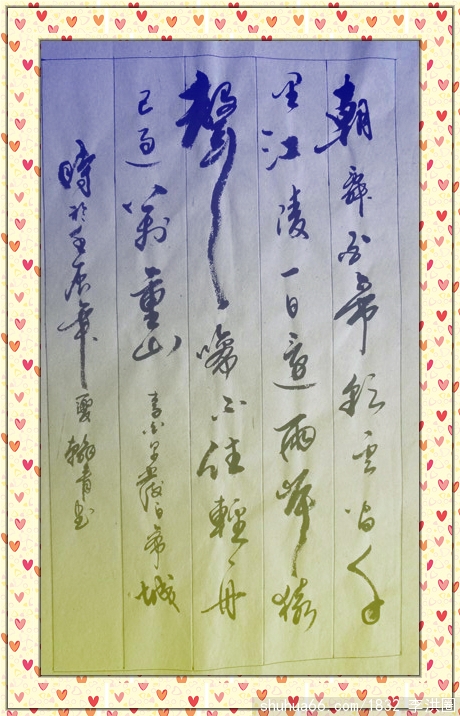 朝辞白帝彩云间千
里江陵一日還兩岸猿
聲啼不住輕舟
已過萬重山 李白早發白帝城
時於壬辰年夏翰青书
shuhua66.com/1832